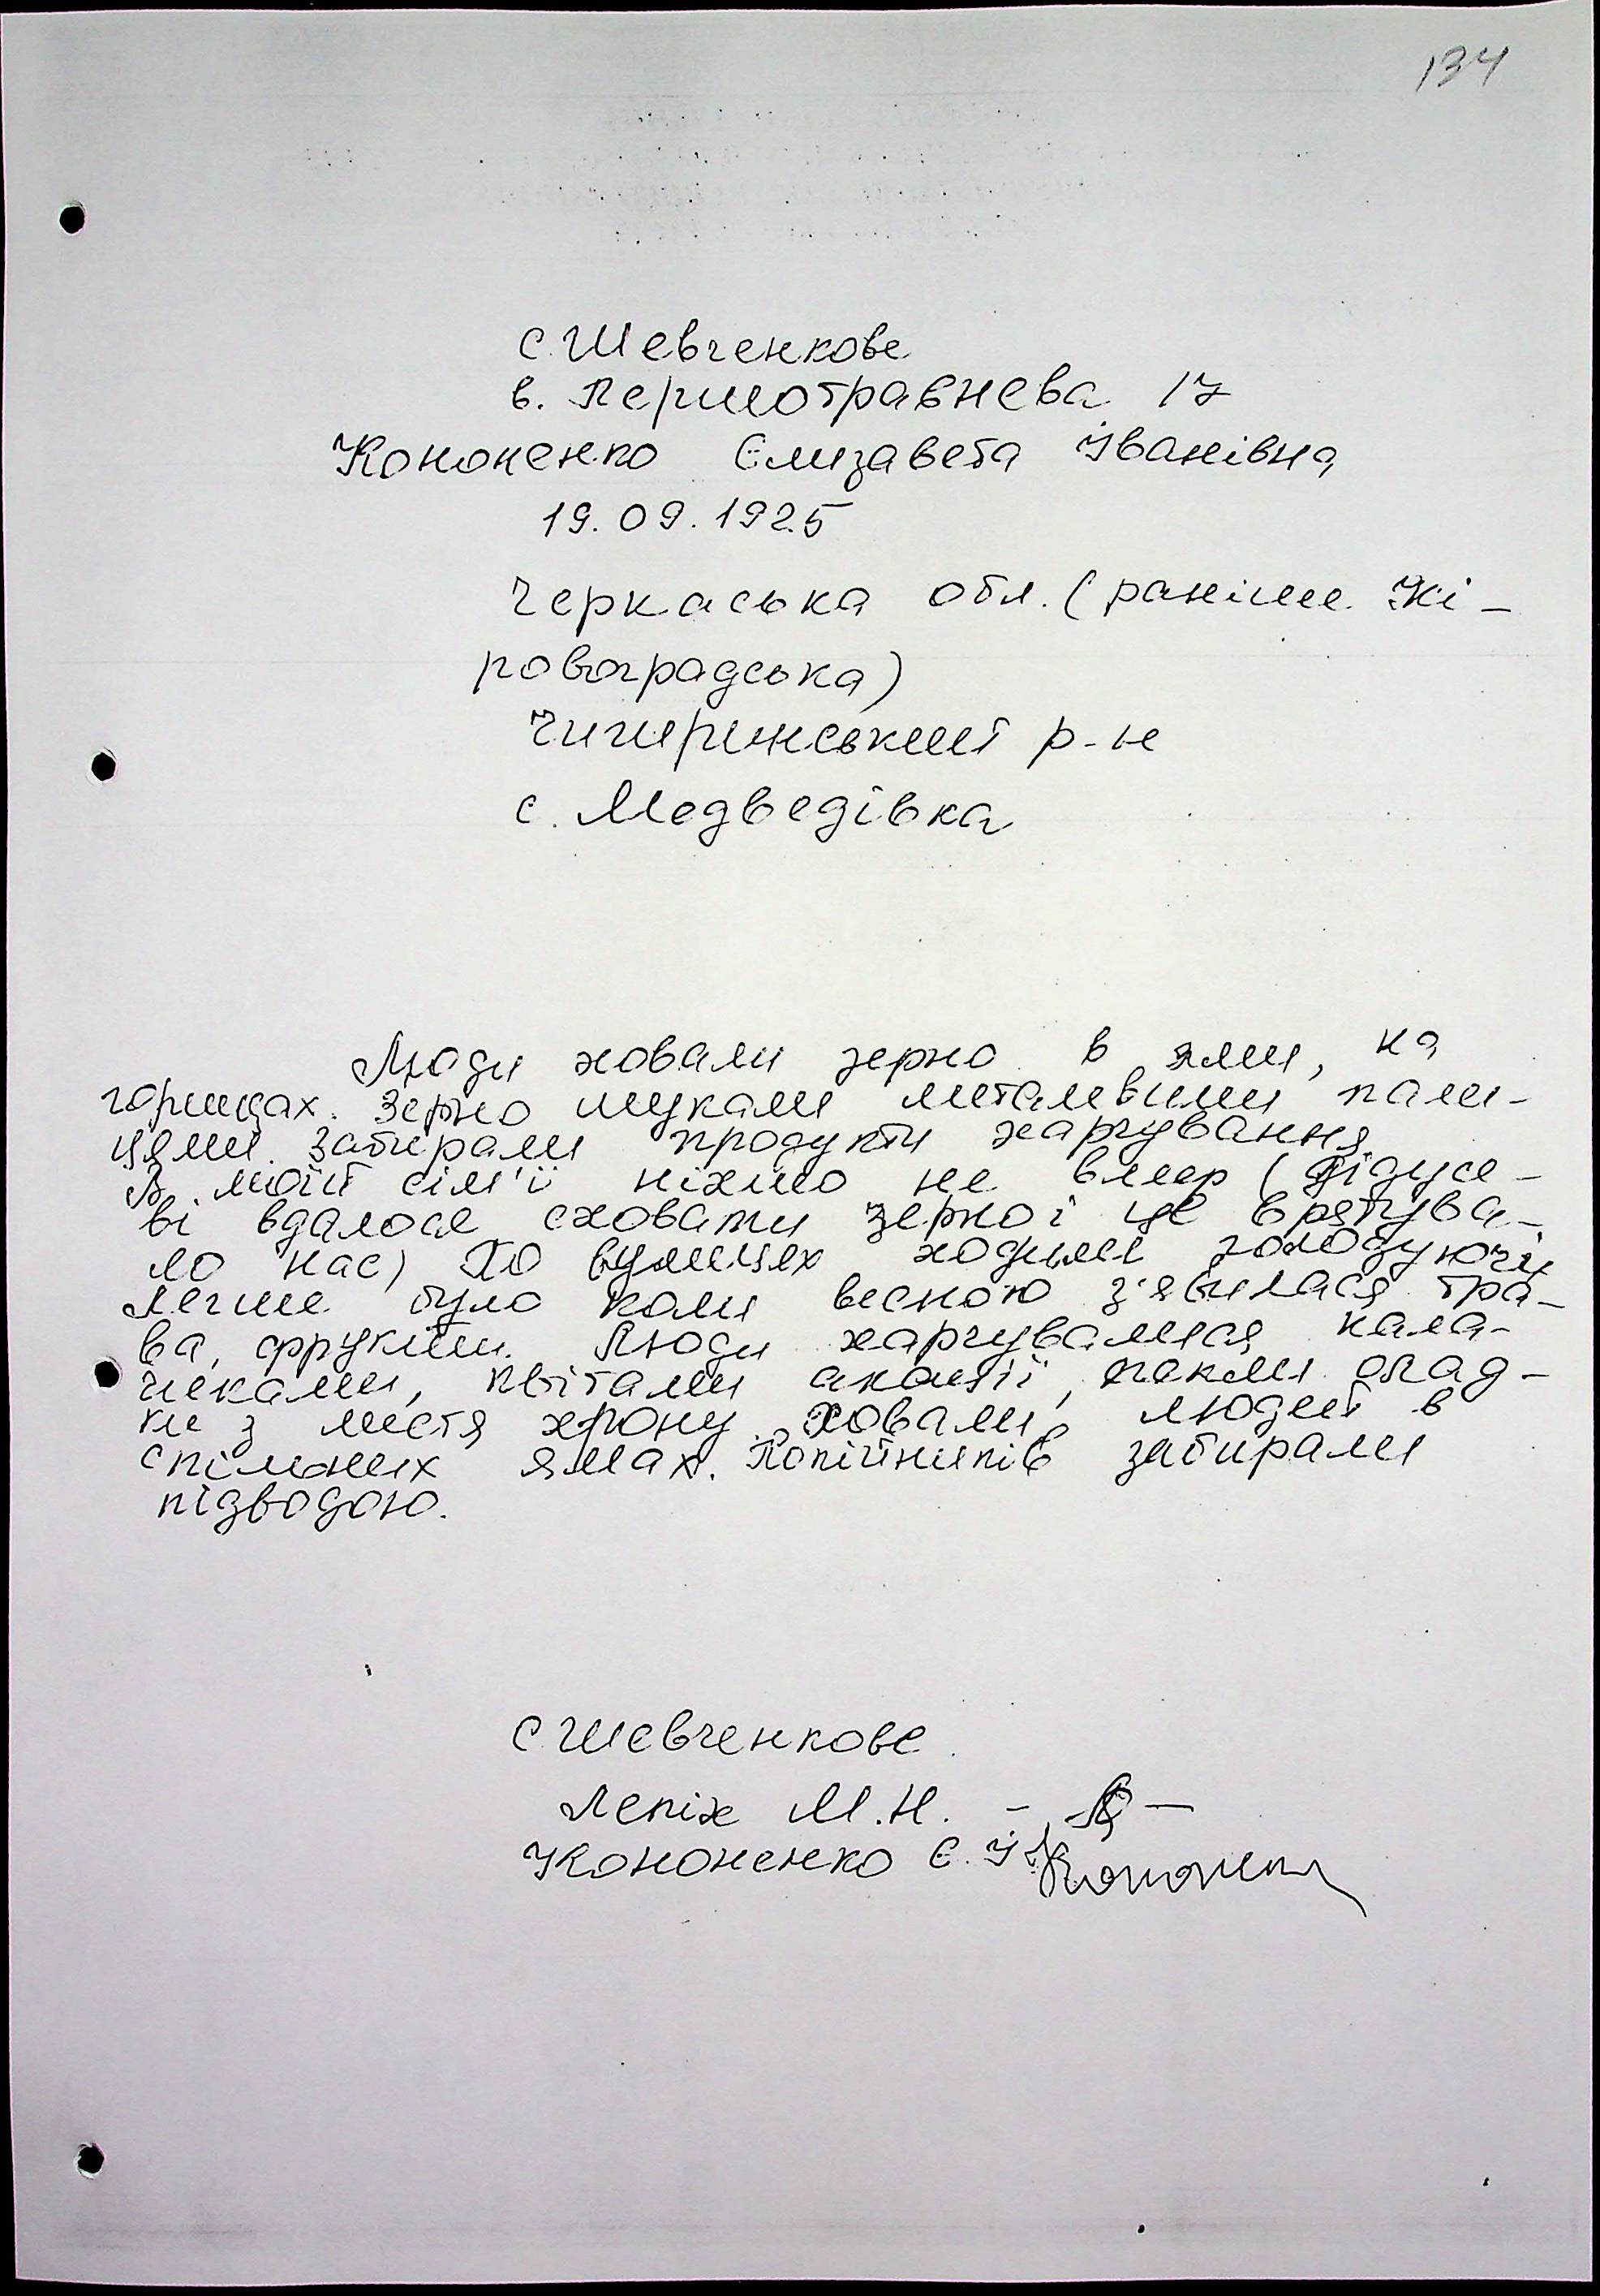 134
с. Шевченкове
в. Першотравнева 17
Кононенко Єлизавета Іванівна
19.09.1925
Черкаська обл. (раніше Кі-
ровоградська)
Чигиринський р-н
с. Медведівка
Люди ховали зерно в ями, на
горищах. Зерно шукали металевими пали-
цями. Забирали продукти харчування
В моїй сім'ї ніхто не вмер (дідусе-
ві вдалося сховати зерно і це врятува-
ло нас) По вулицях ходили голодуючі
Легше було коли весною з'явилася тра-
ва, фрукти. Люди харчувалися кала-
чиками, квітами акації, пекли олад-
ки з листя хрону. Ховали людей в
спільних ямах. Покійників забирали
підводою.
с. Шевченкове
Лепіх М.Н.
Кононенко Є.І.